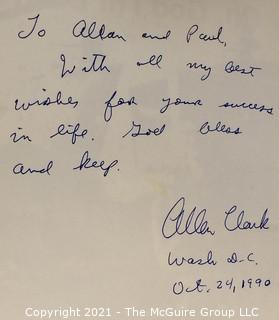 To Allan and Paul,
With all my best
wishes for your success
in life. God bless
and keep.
Allen Clark
Wash D.C.
Oct. 24, 1990
Copyright 2021 - The McGuire Group LLC